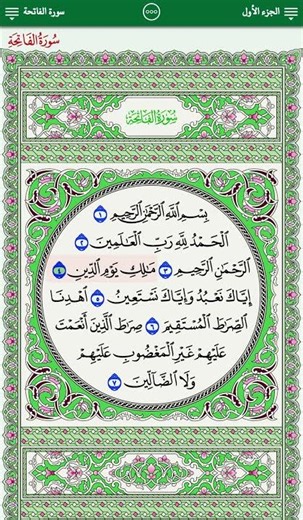 الجزء الأول
سورة الفاتحة
سُورَةُ الفَاتِحَةِ
سُورَةُ الفَاتِحَةِ
بِسْمِ اللَّهِ الرَّحْمَٰنِ الرَّحِيمِ ١
الْحَمْدُ لِلَّهِ رَبِّ الْعَالَمِينَ ٢
الرَّحْمَٰنِ الرَّحِيمِ ٣ مَالِكِ يَوْمِ الدِّينِ ٤
إِيَّاكَ نَعْبُدُ وَإِيَّاكَ نَسْتَعِينُ ٥ اهْدِنَا
الصِّرَاطَ الْمُسْتَقِيمَ ٦ صِرَاطَ الَّذِينَ أَنْعَمْتَ
عَلَيْهِمْ غَيْرِ الْمَغْضُوبِ عَلَيْهِمْ
وَلَا الضَّالِّينَ ٧